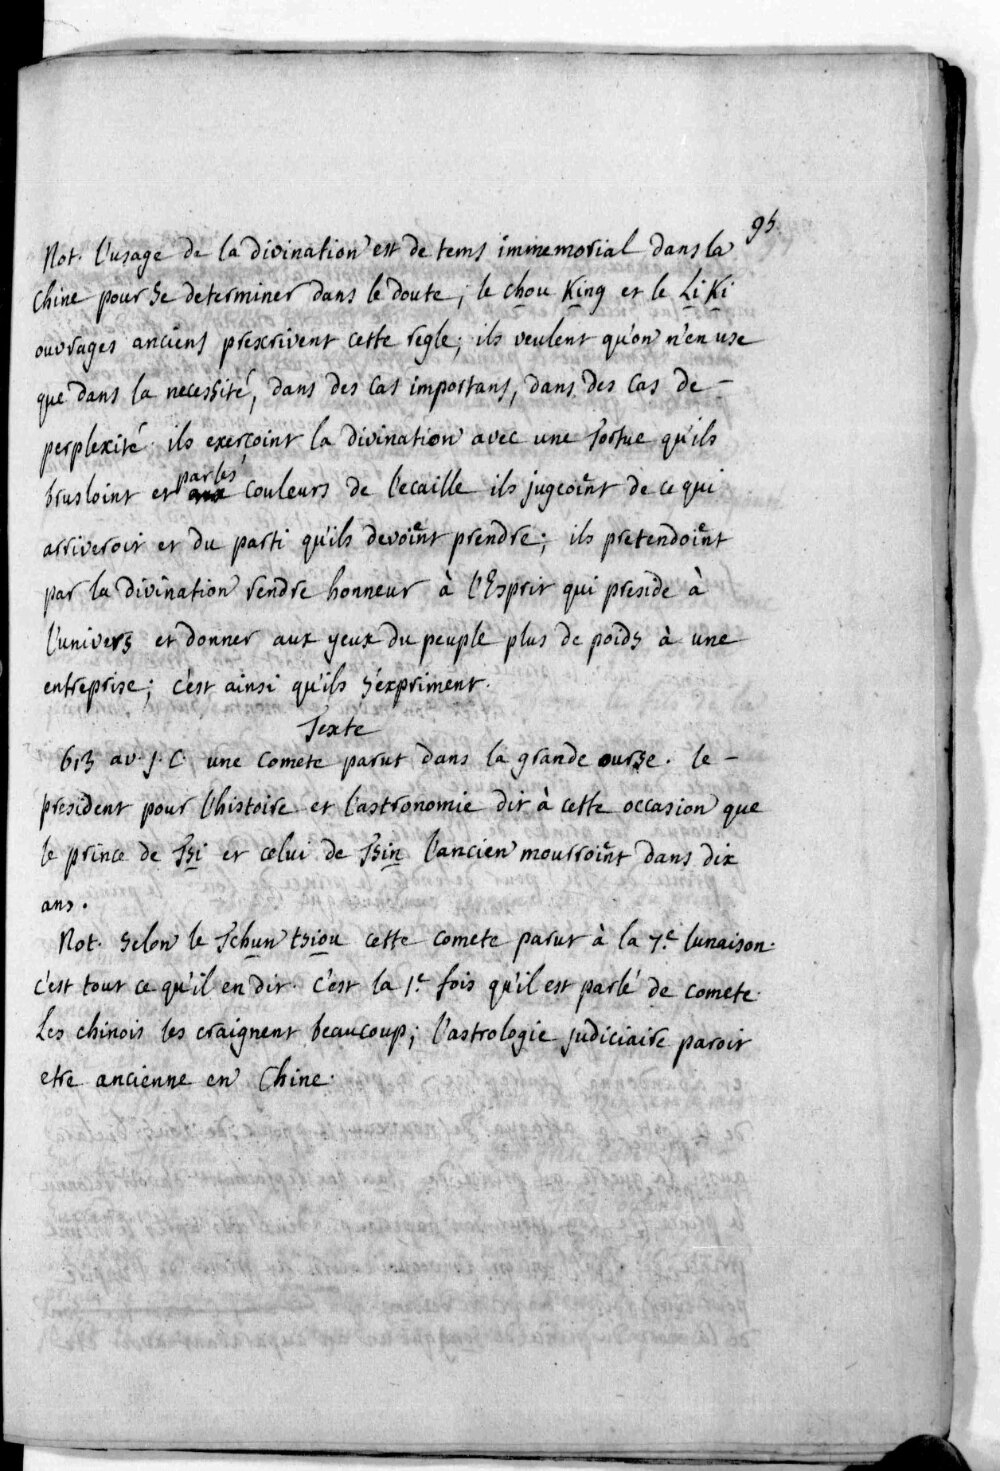 95.
Not. l'usage de la divination est de tems immemorial dans la
chine pour se determiner dans le doute; le chou King et le Li Ki
ouvrages anciens prescrivent cette regle; ils veulent qu'on n'en use
que dans la necessité, dans des cas importans, dans des cas de –
perplexité. ils exerçoint la divination avec une Tortue qu'ils
brusloint et par les couleurs de l'ecaille ils jugeoient de ce qui
arriveroit et du parti qu'ils devoient prendre; ils pretendoient
par la divination rendre honneur à l'Esprit qui preside à
l'univers et donner aux yeux du peuple plus de poids à une
entreprise; c'est ainsi qu'ils s'expriment.
Texte
613 av. J. C. une comete parut dans la grande ourse. le –
president pour l'histoire et l'astronomie dit à cette occasion que
le prince de Tsi et celui de Tsin l'ancien mourroient dans dix
ans.
Not. selon le Tchun tsiou cette comete parut à la 7.e lunaison.
c'est tout ce qu'il en dit. c'est la 1.e fois qu'il est parlé de comete.
Les chinois les craignent beaucoup; l'astrologie judiciaire paroit
etre ancienne en Chine.